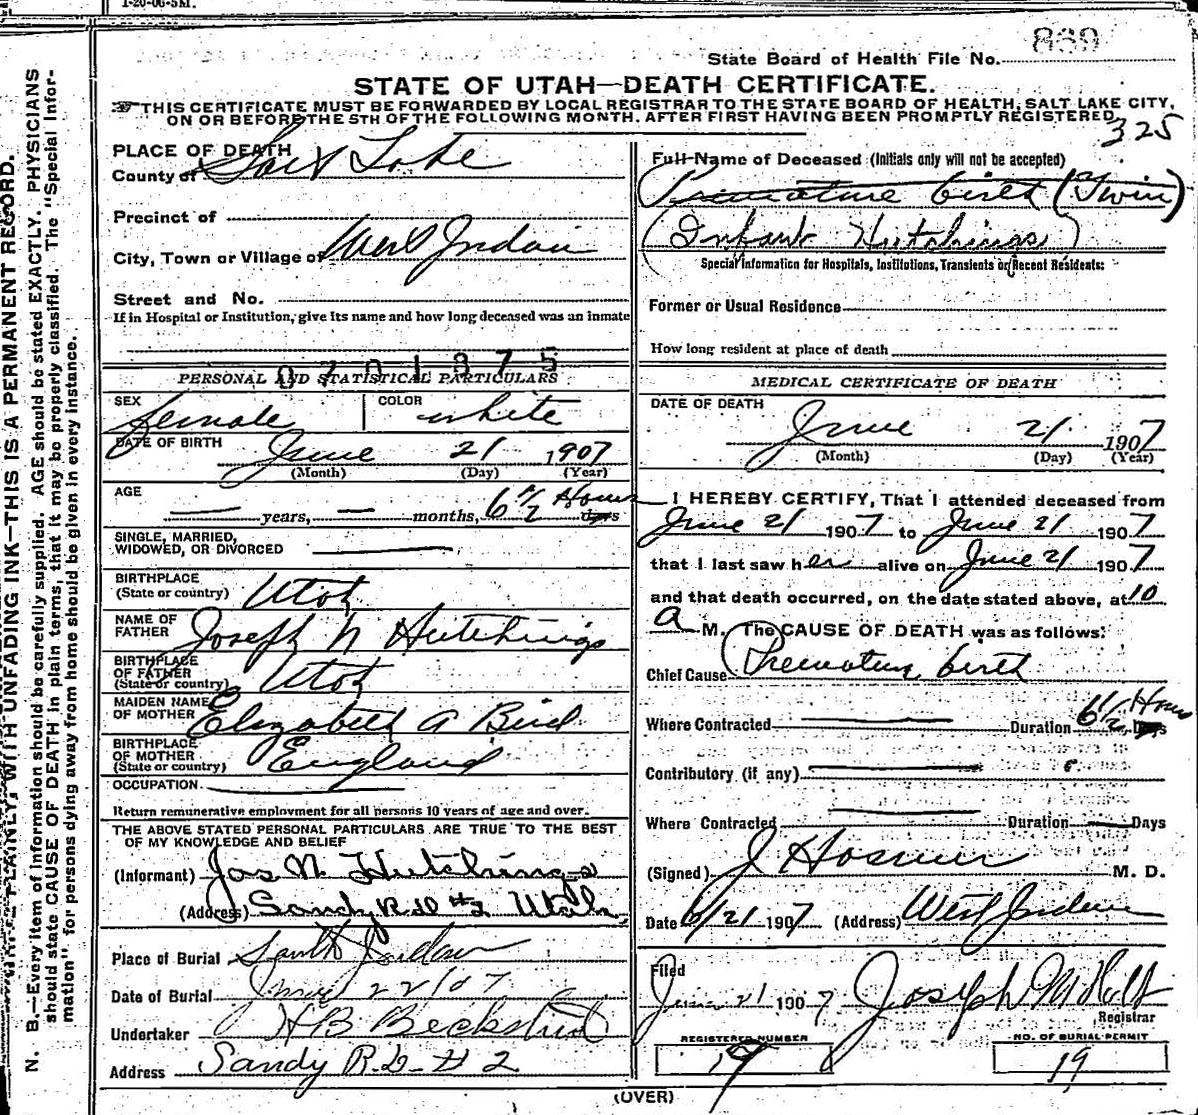 1-20-06-5M.
869
State Board of Health File No.
STATE OF UTAH—DEATH CERTIFICATE.
THIS CERTIFICATE MUST BE FORWARDED BY LOCAL REGISTRAR TO THE STATE BOARD OF HEALTH, SALT LAKE CITY,
ON OR BEFORE THE 5TH OF THE FOLLOWING MONTH, AFTER FIRST HAVING BEEN PROMPTLY REGISTERED.
325
PLACE OF DEATH
County of Salt Lake
Precinct of
City, Town or Village of West Jordan
Street and No.
If in Hospital or Institution, give its name and how long deceased was an inmate
0701375
PERSONAL AND STATISTICAL PARTICULARS
SEX female COLOR white
DATE OF BIRTH June 21 1907
(Month) (Day) (Year)
AGE — years, — months, 6 1/2 Hours days
SINGLE, MARRIED,
WIDOWED, OR DIVORCED
BIRTHPLACE
(State or country) Utah
NAME OF
FATHER Joseph N Hutchings
BIRTHPLACE
OF FATHER
(State or country) Utah
MAIDEN NAME
OF MOTHER Elizabeth A Bird
BIRTHPLACE
OF MOTHER
(State or country) England
OCCUPATION
Return remunerative employment for all persons 10 years of age and over.
THE ABOVE STATED PERSONAL PARTICULARS ARE TRUE TO THE BEST
OF MY KNOWLEDGE AND BELIEF
(Informant) Jos N Hutchings
(Address) Sandy R D #2 Utah
Place of Burial South Jordan
Date of Burial June 22/07
Undertaker H B Beckstead
Address Sandy R.D. #2
Full Name of Deceased (Initials only will not be accepted)
Premature birth (Twin)
(Infant Hutchings)
Special Information for Hospitals, Institutions, Transients or Recent Residents:
Former or Usual Residence
How long resident at place of death
MEDICAL CERTIFICATE OF DEATH
DATE OF DEATH
June 21 1907
(Month) (Day) (Year)
I HEREBY CERTIFY, That I attended deceased from
June 21 1907 to June 21 1907
that I last saw her alive on June 21 1907
and that death occurred, on the date stated above, at 10
a M. The CAUSE OF DEATH was as follows:
Chief Cause Premature birth
Where Contracted — Duration 6 1/2 Hours Days
Contributory (if any)
Where Contracted — Duration — Days
(Signed) J Hosmer M. D.
Date 6/21 1907 (Address) West Jordan
Filed
June 21 1907 Joseph M Holt
Registrar
REGISTERED NUMBER
19
NO. OF BURIAL PERMIT
19
(OVER)
WRITE PLAINLY, WITH UNFADING INK—THIS IS A PERMANENT RECORD.
N. B.—Every item of information should be carefully supplied. AGE should be stated EXACTLY. PHYSICIANS
should state CAUSE OF DEATH in plain terms, that it may be properly classified. The "Special Infor-
mation" for persons dying away from home should be given in every instance.